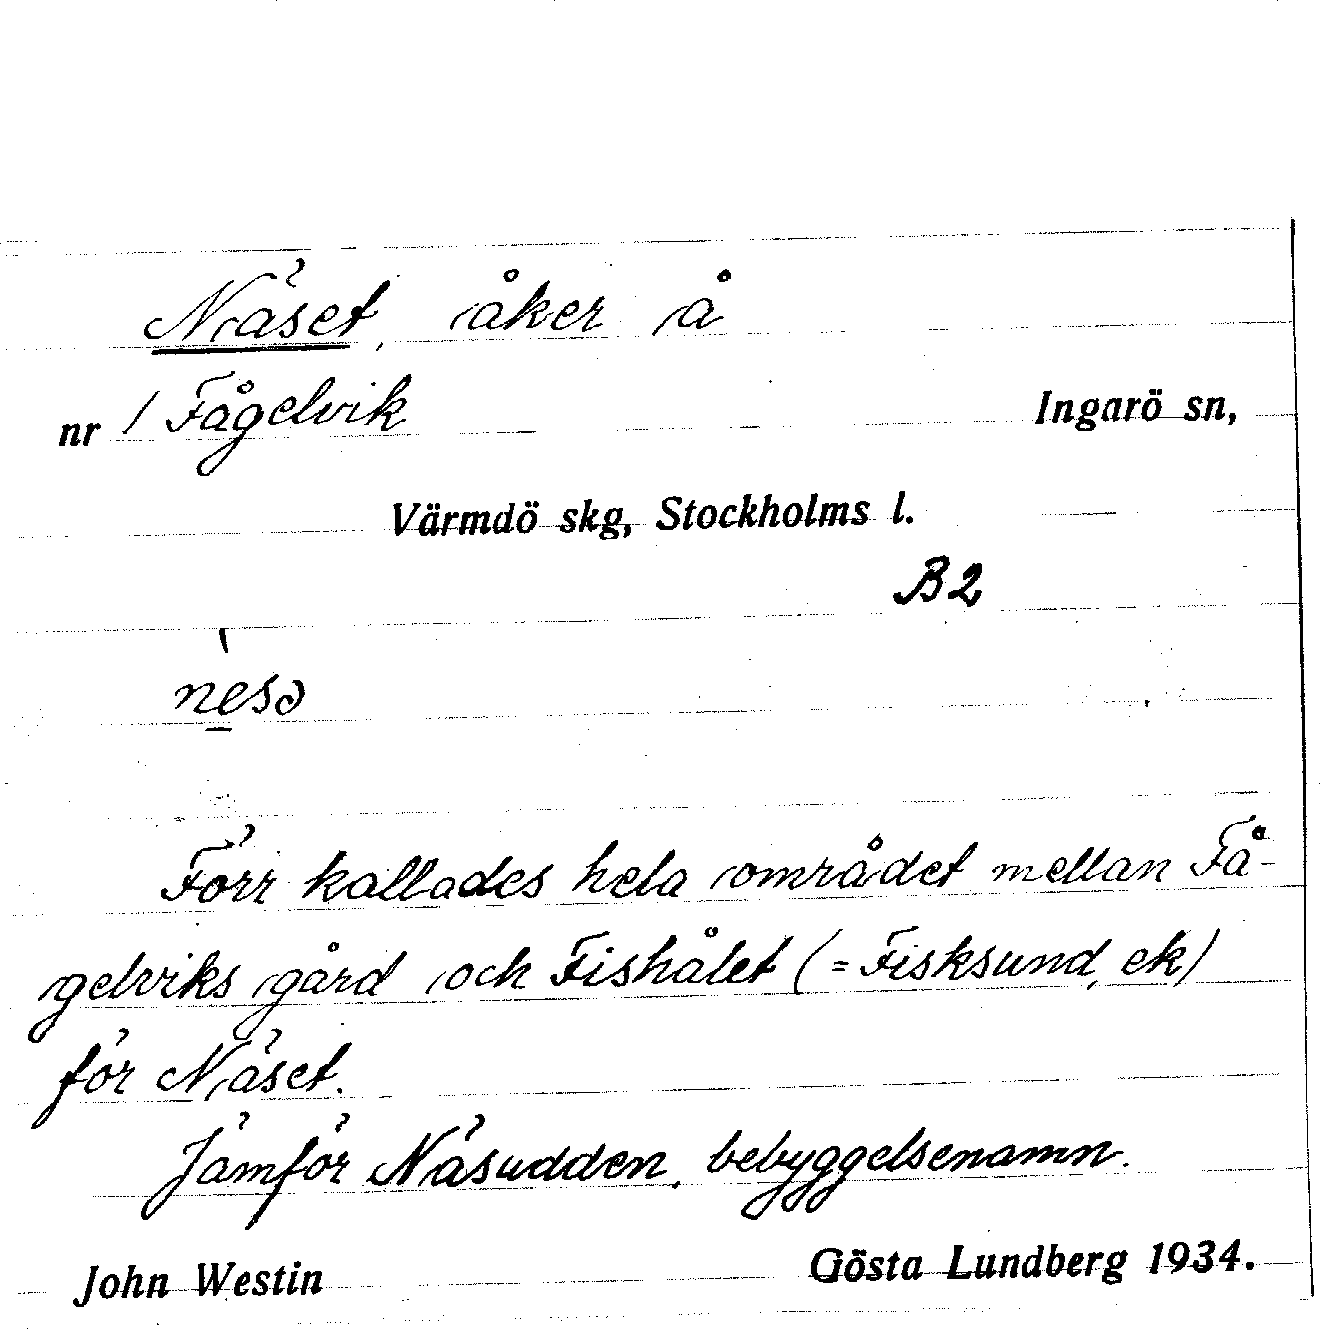 Näset, åker å
nr 1 Fågelvik Ingarö sn,
Värmdö skg, Stockholms l.
B2
nesə
Förr kallades hela området mellan Få-
gelviks gård och Fishålet (= Fisksund, ek)
för Näset.
Jämför Näsudden, bebyggelsenamn.
John Westin Gösta Lundberg 1934.